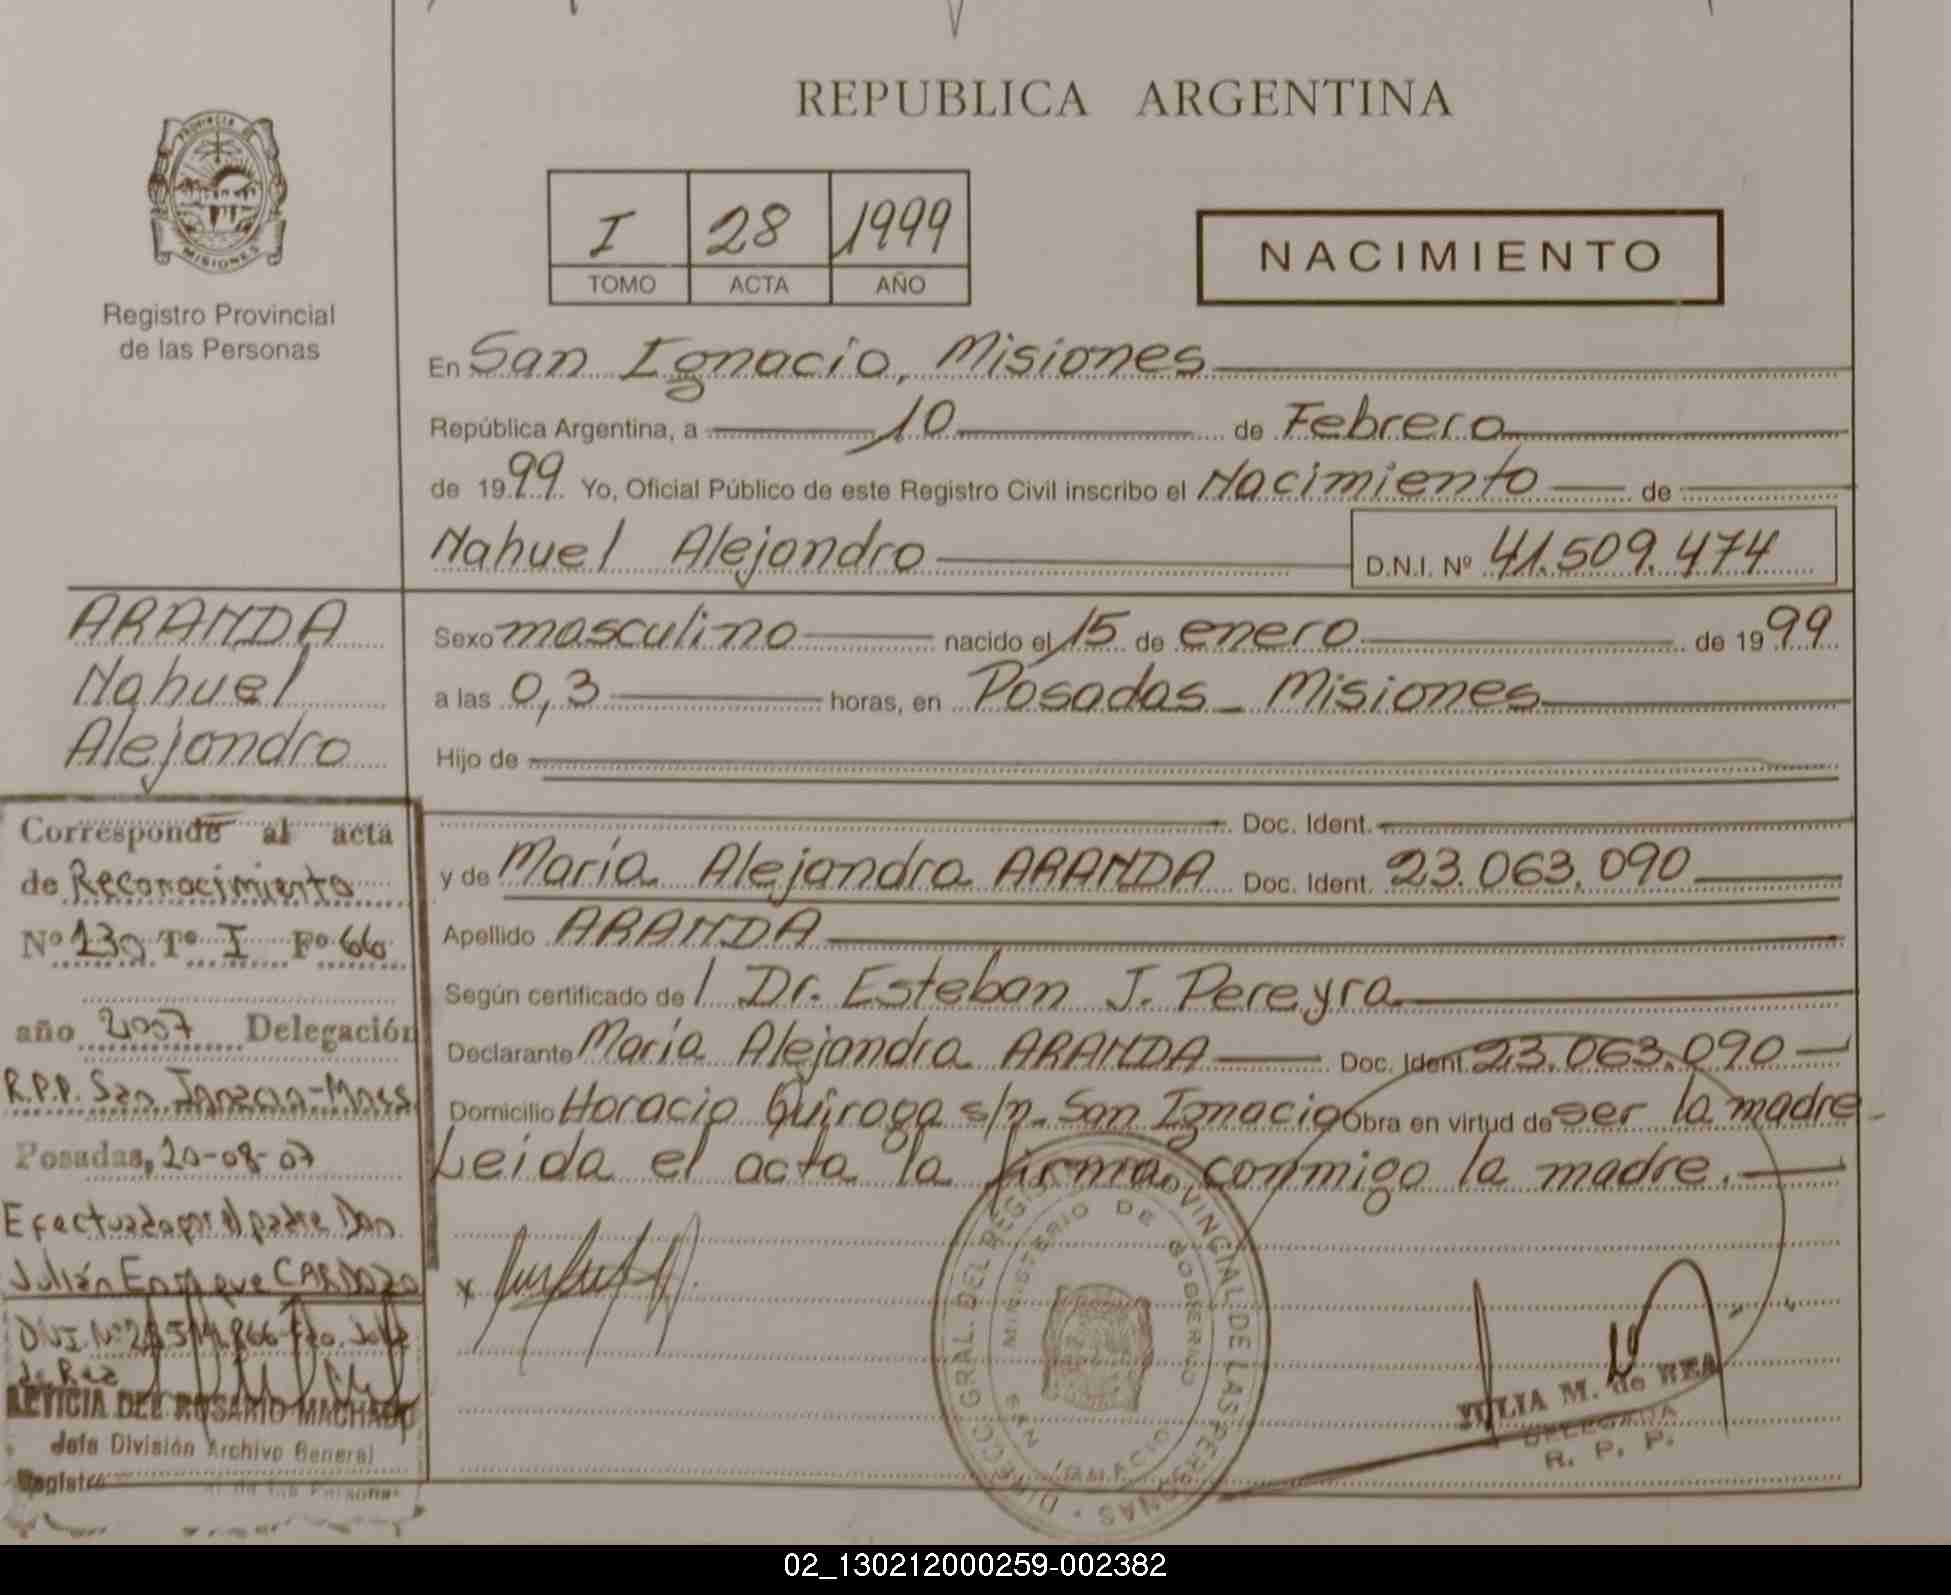 REPUBLICA ARGENTINA
PROVINCIA DE
MISIONES
Registro Provincial
de las Personas
I 28 1999
TOMO ACTA AÑO
NACIMIENTO
En San Ignacio, Misiones
República Argentina, a 10 de Febrero
de 1999 Yo, Oficial Público de este Registro Civil inscribo el Nacimiento de
Nahuel Alejandro D.N.I. Nº 41.509.474
ARANDA
Nahuel
Alejandro
Sexo masculino nacido el 15 de enero de 1999
a las 0,3 horas, en Posadas - Misiones
Hijo de
Doc. Ident.
y de María Alejandra ARANDA Doc. Ident. 23.063.090
Apellido ARANDA
Según certificado de l Dr. Esteban J. Pereyra
Declarante María Alejandra ARANDA Doc. Ident. 23.063.090
Domicilio Horacio Quiroga s/n. San Ignacio Obra en virtud de ser la madre
Leída el acta la firma conmigo la madre.
Corresponde al acta
de Reconocimiento
Nº 130 Tº I Fº 66
año 2007 Delegación
R.P.P. San Ignacio-Mnes
Posadas, 20-08-07
Efectuada por el padre Don
Julián Enrique CARDOZO
D.N.I. Nº Fdo. Julia
de Rea
LETICIA DEL ROSARIO MACHADO
Jefe División Archivo General
de las Personas
x
DIRECC. GRAL. DEL REGISTRO PROVINCIAL DE LAS PERSONAS
MINISTERIO DE GOBIERNO
SAN IGNACIO
JULIA M. de REA
DELEGADA
R. P. P.
02_130212000259-002382